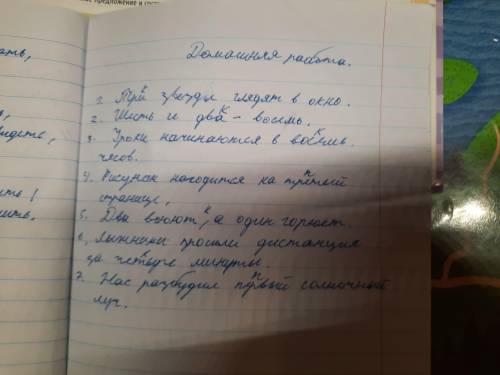 ное предложение и
ать,
Домашняя работа.
1. Три звезды глядят в окно.
2. Шесть и два - восемь.
3. Уроки начинаются в восемь
часов.
4. Рисунок находится на
странице,
5. Два воюют, а один горюет.
6, лыжники прошли дистанция
за четыре минуты.
7. Нас разбудил первый солнечный
луч.